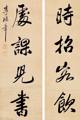 時招客飲
屢課兒書